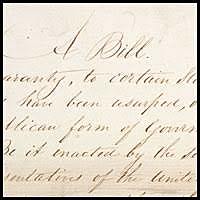 A Bill.
uaranty, to certain Sta
have been usurped, o
ublican form of Govern
Be it enacted by the Se
sentatives of the Unite